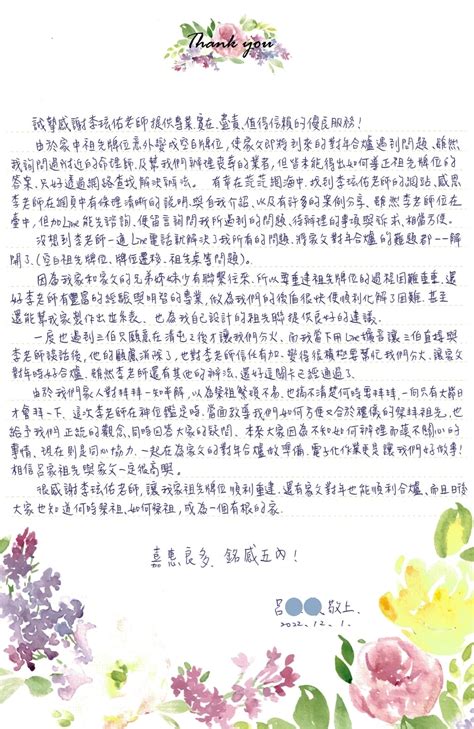 Thank you
誠摯感謝李玹佑老師提供專業、實在、盡責、值得信賴的優良服務!
由於家中祖先牌位意外變成空白牌位,使家父即將到來的對年合爐遇到問題,雖然
我詢問過附近的命理師,及幫我們辦理喪葬的業者,但皆未能得出如何導正祖先牌位的
答案,只好透過網路查找解決辦法。有幸在茫茫網海中,找到李玹佑老師的網站,感恩
李老師在網頁中有條理清晰的說明,與自我介紹,以及有許多的案例分享,雖然李老師位在
臺中,但加Line能先諮詢,便留言詢問我所遇到的問題、待辦理的事項與訴求,相當方便。
沒想到李老師一通Line電話就解決了我所有的問題,將家父對年合爐的難題都一一解
開了(空白祖先牌位、牌位遷移、祖先桌等問題)。
因為我家和家父的兄弟姊妹少有聯繫往來,所以要重建祖先牌位的過程困難重重,還
好李老師有豐富的經驗與明智的專業,做為我們的後盾很快便順利化解了困難,甚至
還能幫我家製作出世系表、也為我自己設計的祖先聯提供良好的建議。
一度也遇到三伯只願意在清屯之後才讓我們分火,而我當下用Line擴音讓三伯直接與
李老師談話後,他的顧慮消除了,也對李老師信任有加,變得很積極要幫忙我們分火,讓家父
對年時好合爐,雖然李老師還有其他的辦法,還好這關卡已經通過了。
由於我們家人對拜拜一知半解,以為祭祖繁瑣不易,也搞不清楚何時要拜拜,一向只有大節日
才會拜一下,這次李老師在神位鑑定時,當面教導我們如何方便又合於禮儀的祭拜祖先,也
給予我們正統的觀念,同時回答大家的疑問,本來大家因為不知如何辦理而漠不關心的
事情,現在則是同心協力、一起在為家父的對年合爐做準備,電子化作業更是讓我們好做事!
相信呂家祖先與家父一定很高興。
很感謝李玹佑老師,讓我家祖先牌位順利重建,還有家父對年也能順利合爐,而且日後
大家也知道何時祭祖、如何祭祖,成為一個有根的家。
嘉惠良多,銘感五內!
呂 敬上.
2022.12.1.